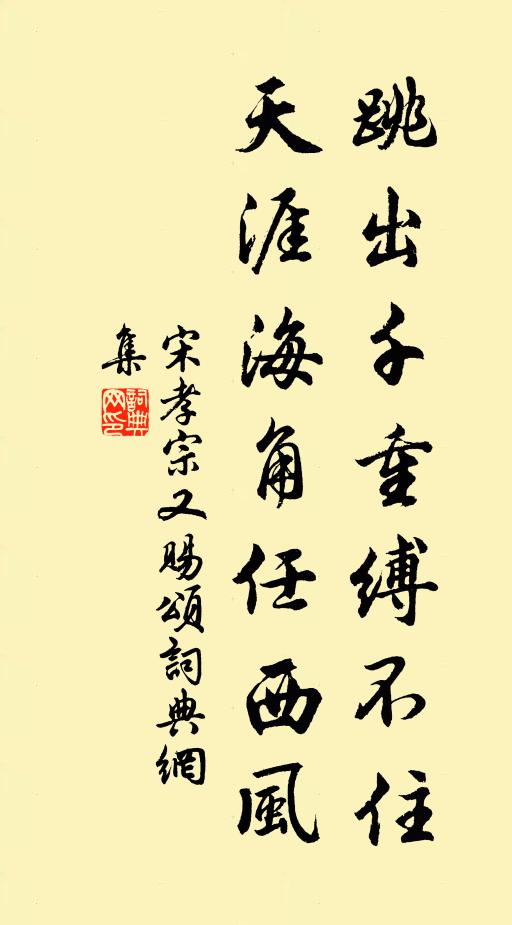 跳出千重縛不住
天涯海角任西風
宋孝宗又賜頌詞典網
集
詞典
网印